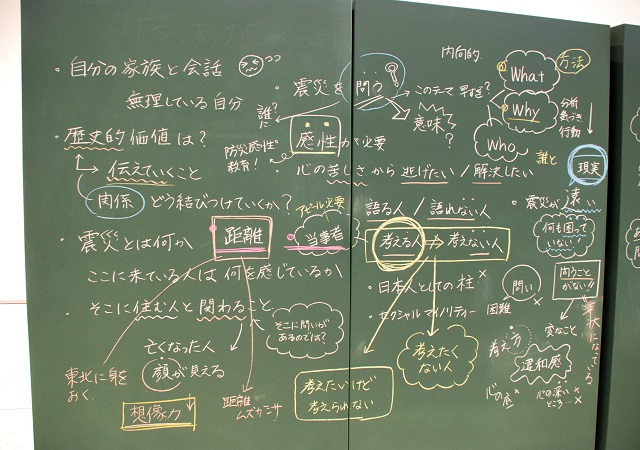 ・自分の家族と会話
無理している自分
・歴史的価値は?
伝えていくこと
関係 どう結びつけていくか?
・震災とは何か
ここに来ている人は何を感じているか
・そこに住む人と関わること
亡くなった人
顔が見える
東北に身を
おく
想像力
距離
ムズカシサ
距離
当事者
アピール必要
そこに問いが
あるのでは?
・震災を問う
誰に?
防災感性
教育!
感性が必要
・心の苦しさから逃げたい/解決したい
このテーマ早[?]?
意味?
内向的
What
Why
Who
方法
分析
気づき
行動
誰と
現実
語る人/語れない人
考える人⇒考えない人
・震災が遠い
何も困って
いない
・日本人としての柱×
・セクシャルマイノリティー
問い
困難
問うこと
がない!!
考えたく
ない人
考えたいけど
考えられない
考え方
変なこと
違和感
心の底×
心の深い
ところ…×